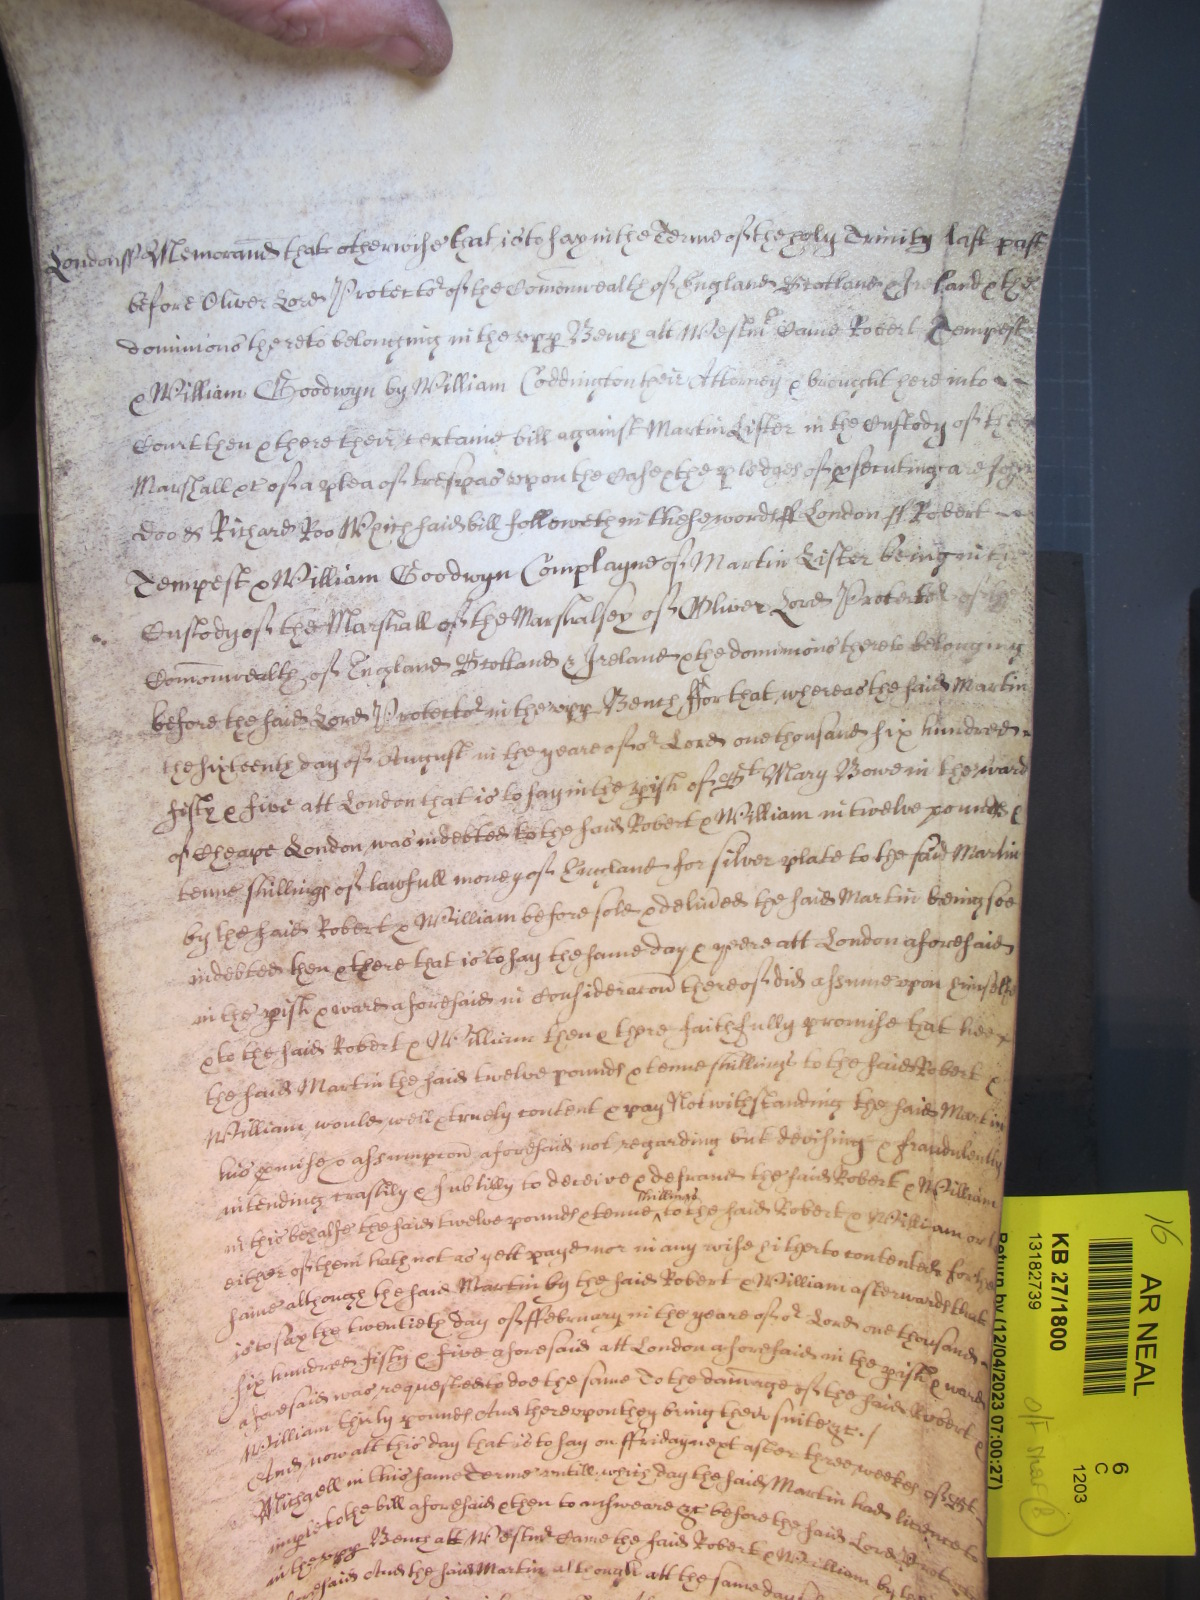 London ss Memorand that otherwise that is to say in the Terme of the holy Trinity last past
before Oliver Lord Protector of the Comonwealth of England Scotland & Ireland & the
dominions thereto belonging in the upp Bench att Westmr Came Robert Tempest
& William Goodwyn by William Coddington their Attorney & brought here into
Court then & there their certaine bill against Martin Lister in the Custody of the
Marshall &c of a plea of trespas upon the Case & the pledges of psecuting are John
Doo & Richard Roo Which said bill followeth in these words ss London ss Robert
Tempest & William Goodwyn Complayne of Martin Lister being in the
Custody of the Marshall of the Marshalsey of Oliver Lord Protector of the
Comonwealth of England Scotland & Ireland & the dominions thereto belonging
before the said Lord Protector in the upp Bench ffor that whereas the said Martin
the sixteenth day of August in the yeare of or Lord one thousand six hundred
fifty & five att London that is to say in the pish of St Mary Bowe in the ward
of Cheape London was indebted to the said Robert & William in twelve pounds &
tenne shillings of lawfull money of England for silver plate to the said Martin
by the said Robert & William before sold & delived the said Martin being soe
indebted then & there that is to say the same day & yeare att London aforesaid
in the pish & ward aforesaid in Consideracon thereof did assume upon himselfe
& to the said Robert & William then & there faithfully promise that hee
the said Martin the said twelve pounds & tenne shillings to the said Robert &
William would well & truely content & pay Notwithstanding the said Martin
his pmise & assumpcon aforesaid not regarding but devising & fraudulently
intending craftily & subtilly to deceive & defraud the said Robert & William
in this behalfe the said twelve pounds & tenne shillings to the said Robert & William or
either of them hath not as yett payd nor in any wise hitherto contented for the
same although the said Martin by the said Robert & William afterwards that
is to say the twentieth day of ffebruary in the yeare of or Lord one thousand
six hundred fifty & five aforesaid att London aforesaid in the pish & ward
aforesaid was requested to doe the same To the damage of the said Robert &
William thirty pounds And thereupon they bring their suite &c. /
And now att this day that is to say on ffriday next after three weekes of St
Michaell in this same Terme untill which day the said Martin had licence to
imple to the bill aforesaid & then to answeare &c before the said Lord Protector
in the upp Bench att Westmr Came the said Robert & William by
aforesaid And the said Martin although att the same day
AR NEAL
16
KB 27/1800
13182739
Return by (12/04/2023 07:00:27)
6
C
1203